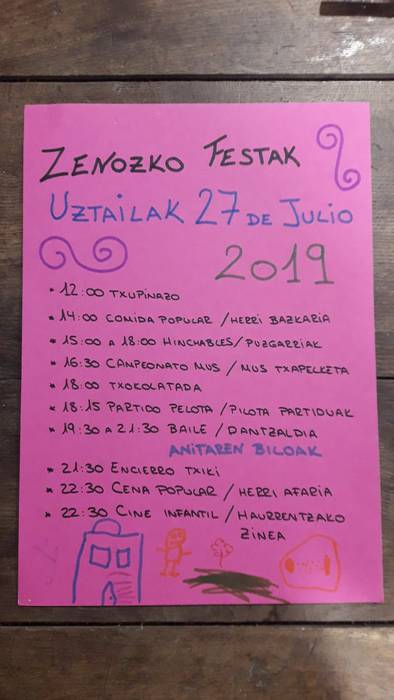 ZENOZKO FESTAK
UZTAILAK 27 DE JULIO
2019
* 12:00 TXUPINAZO
* 14:00 COMIDA POPULAR / HERRI BAZKARIA
* 15:00 A 18:00 HINCHABLES / PUZGARRIAK
* 16:30 CAMPEONATO MUS / MUS TXAPELKETA
* 18:00 TXOKOLATADA
* 18:15 PARTIDO PELOTA / PILOTA PARTIDUAK
* 19:30 A 21:30 BAILE / DANTZALDIA
ANITAREN BILOAK
* 21:30 ENCIERRO TXIKI
* 22:30 CENA POPULAR / HERRI AFARIA
* 22:30 CINE INFANTIL / HAURRENTZAKO
ZINEA